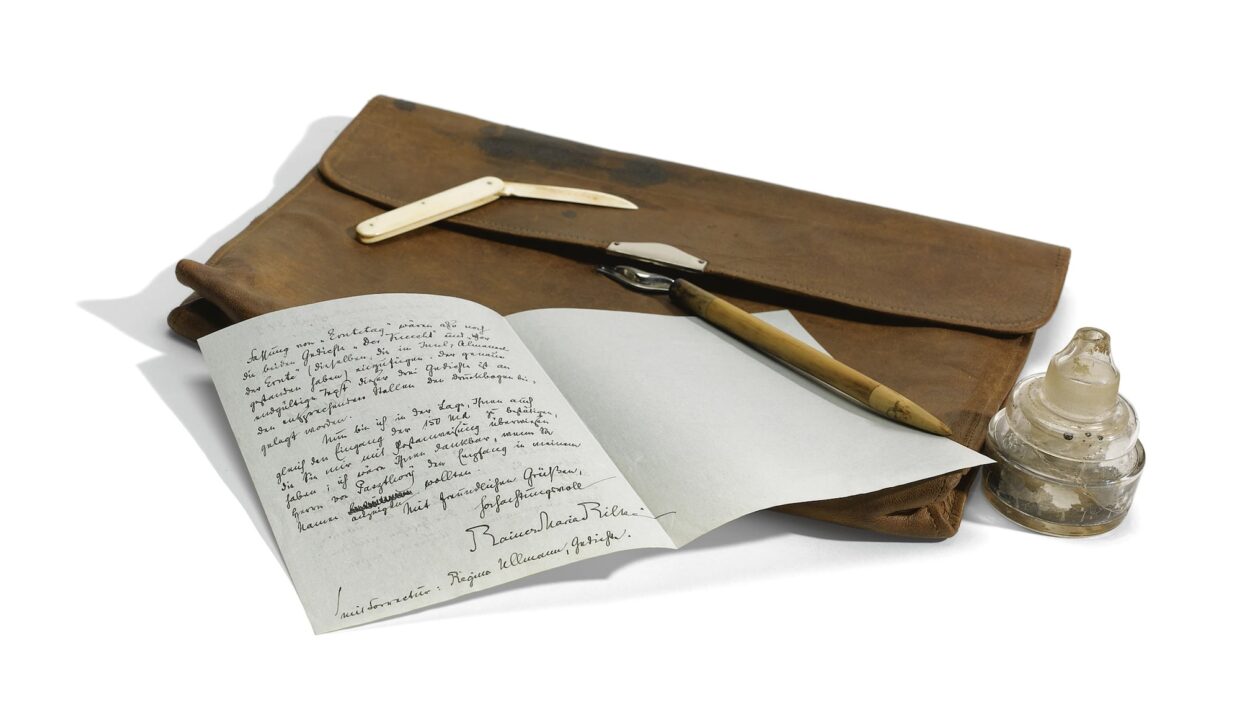 Fassung von „Erntetag“ wären also noch
die beiden Gedichte „Der Knecht“ und „Der
der Ernte (dieselben, die im Insel-Almanach
gestanden haben) einzufügen. Der genaue
endgültige Text dieser drei Gedichte ist an
den entsprechenden Stellen den Druckbogen bei-
gelegt worden.
Nun bin ich in der Lage, Ihnen auch
gleich den Eingang der 150 Mk zu bestätigen,
die Sie mir mit Postanweisung überwiesen
haben; ich wäre Ihnen dankbar, wenn Sie
Herrn von Paszthory den Empfang in meinem
Namen anzeigen wollten.
Mit freundlichen Grüßen,
hochachtungsvoll
Rainer Maria Rilke
mit Correctur: Regina Ullmann, Gedichte.